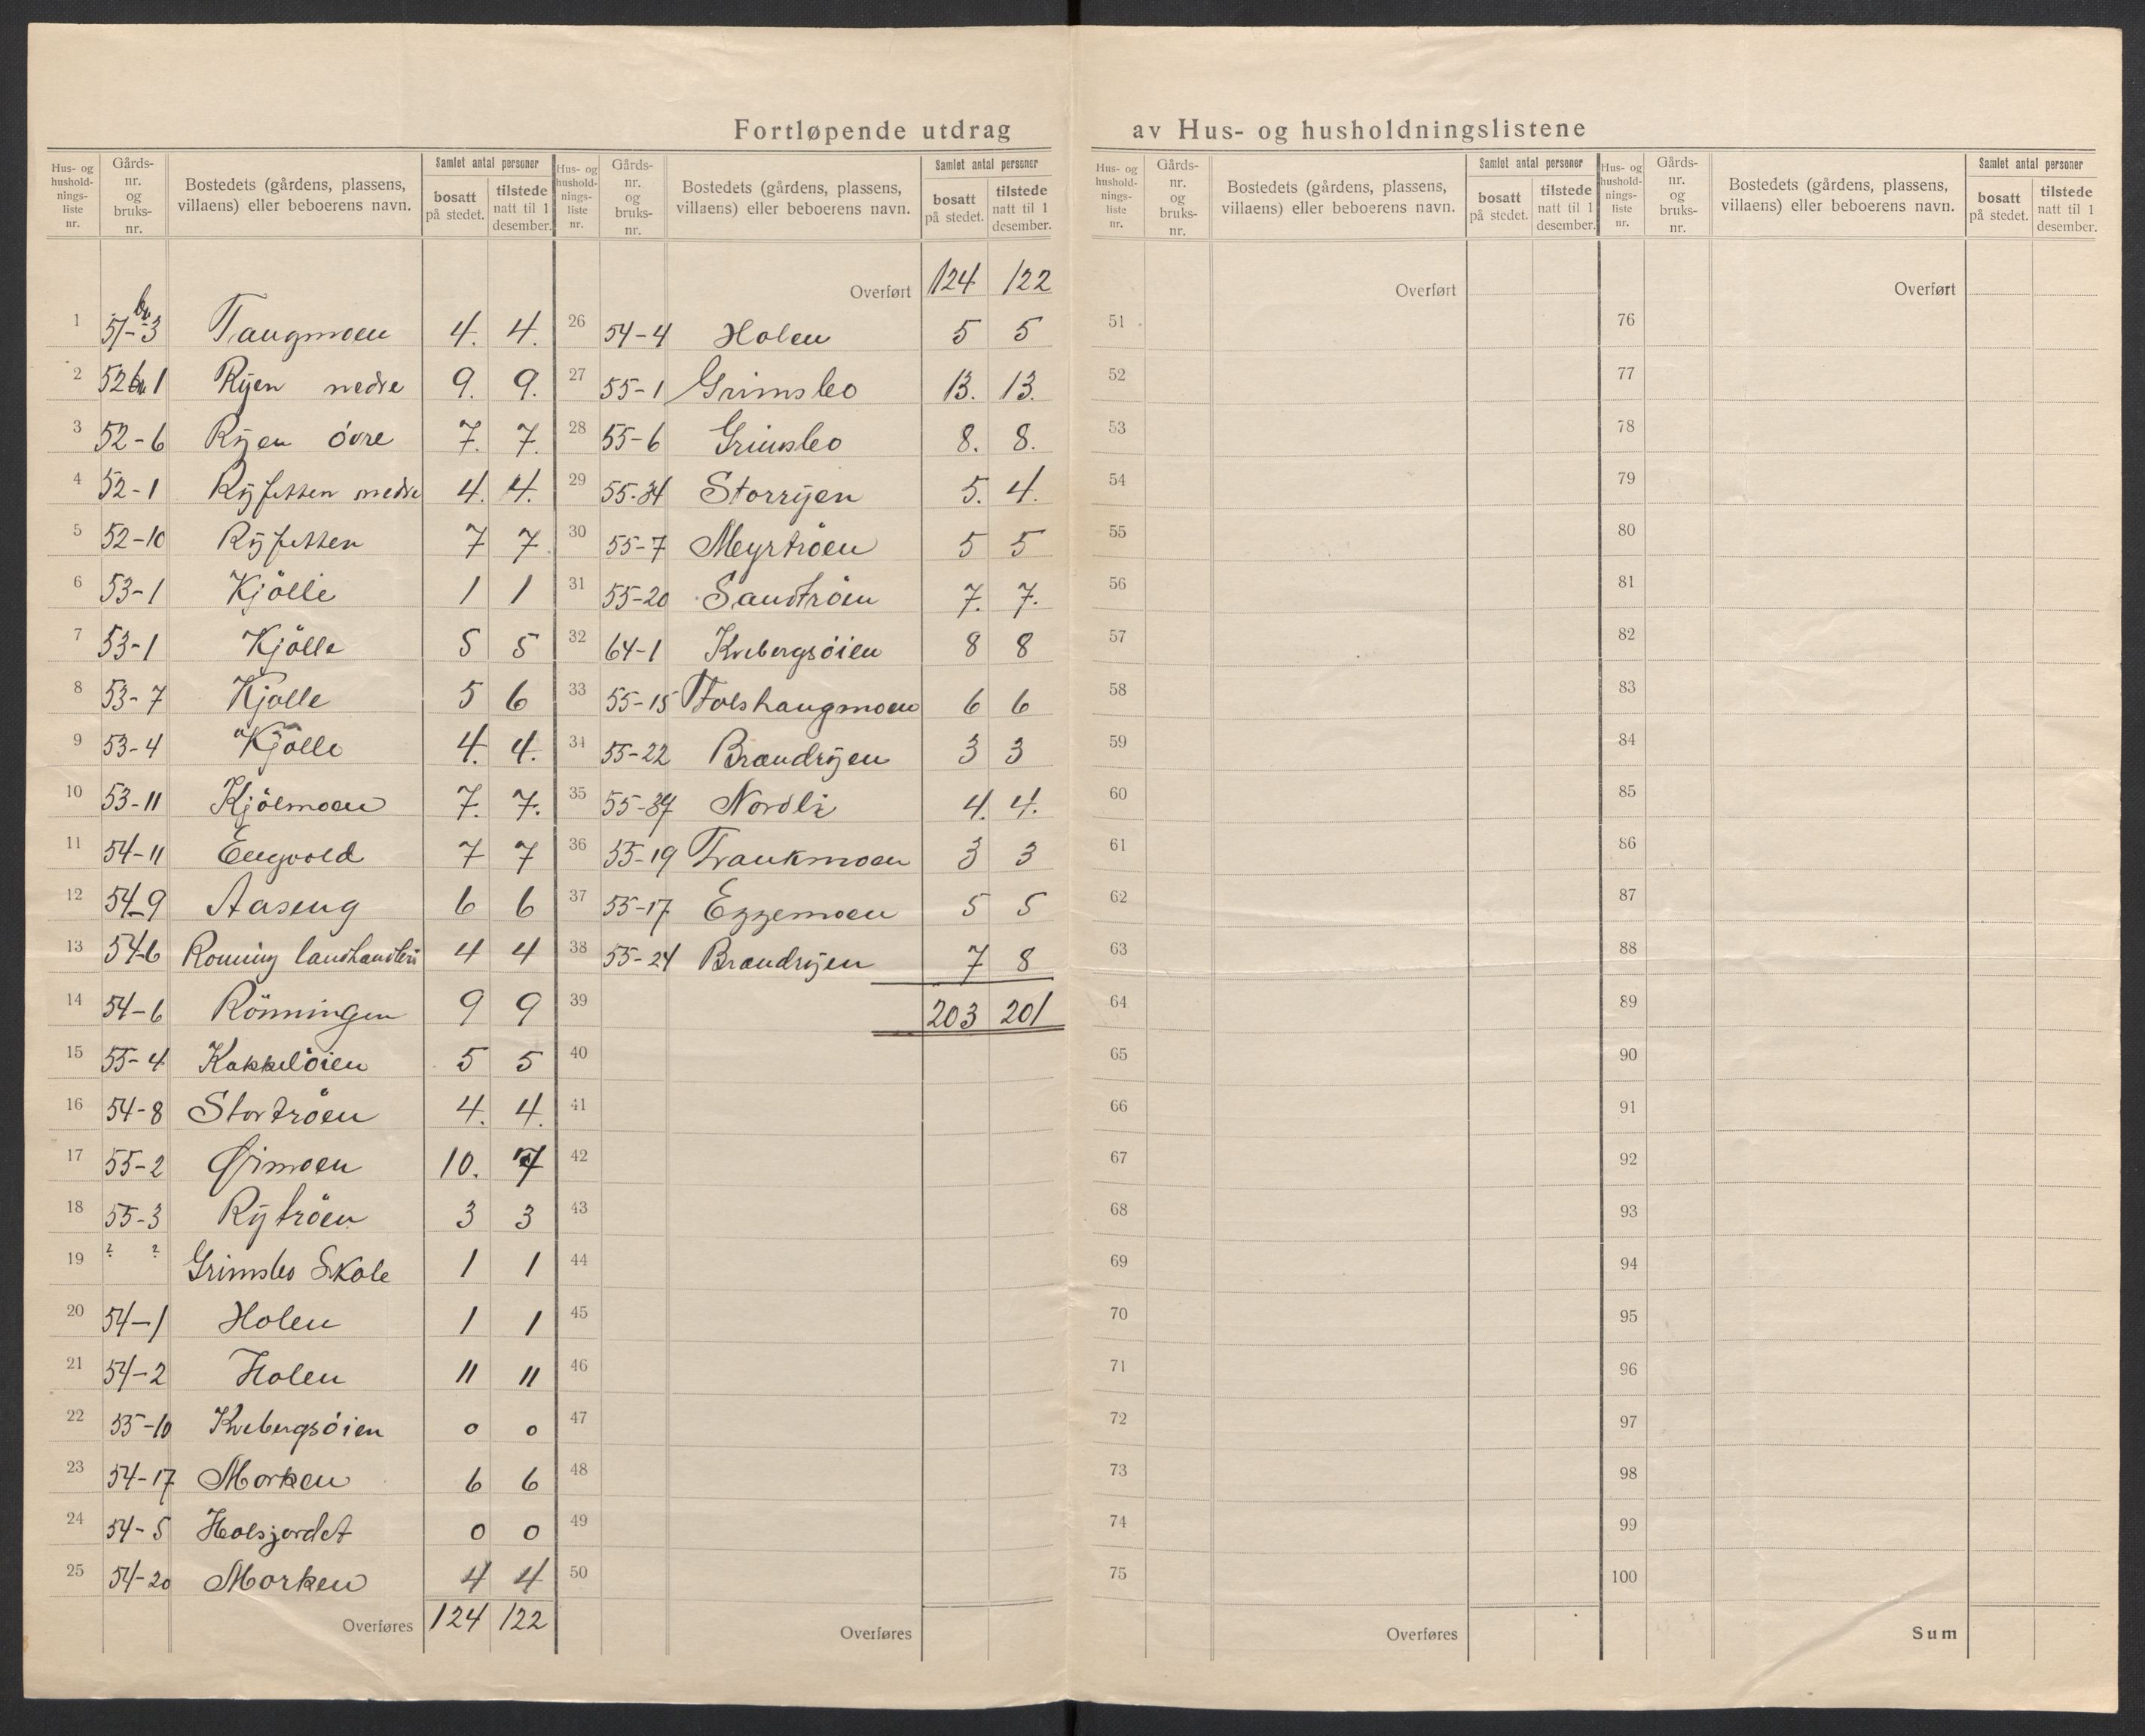 Fortløpende utdrag av Hus- og husholdningslistene
Hus- og hushold-nings-liste nr. | Gårds-nr. og bruks-nr. | Bostedets (gårdens, plassens, villaens) eller beboerens navn. | Samlet antal personer | bosatt på stedet. | tilstede natt til 1 desember.
1 51-3 Taugmoen 4. 4.
2 52 1 Ryen nedre 9. 9.
3 52-6 Ryen övre 7. 7.
4 52-1 Ryfetten nedre 4. 4.
5 52-10 Ryfetten 7 7
6 53-1 Kjölle 1 1
7 53-1 Kjölle 5 5
8 53-7 Kjölle 5 6
9 53-4 Kjölle 4. 4.
10 53-11 Kjölmoen 7. 7.
11 54-11 Engvold 7 7
12 54-9 Aaseng 6 6
13 54-6 Roning landhandleri 4 4
14 54-6 Rönningen 9 9
15 55-4 Kakkelöien 5 5
16 54-8 Stortröen 4. 4.
17 55-2 Øimoen 10. 7
18 55-3 Rytröen 3 3
19 ? ? Grimsbo Skole 1 1
20 54-1 Holen 1 1
21 54-2 Holen 11 11
22 55-10 Kvebergsöien 0 0
23 54-17 Morken 6 6
24 54-5 Holsjordet 0 0
25 54-20 Morken 4 4
Overføres 124 122
Hus- og hushold-nings-liste nr. | Gårds-nr. og bruks-nr. | Bostedets (gårdens, plassens, villaens) eller beboerens navn. | Samlet antal personer | bosatt på stedet. | tilstede natt til 1 desember.
Overført 124 122
26 54-4 Holen 5 5
27 55-1 Grimsbo 13. 13.
28 55-6 Grimsbo 8. 8.
29 55-34 Storryen 5. 4.
30 55-7 Meyrtröen 5 5
31 55-20 Sandtröen 7. 7.
32 64-1 Kvebergsöien 8 8
33 55-15 Tolshaugmoen 6 6
34 55-22 Brandryen 3 3
35 55-37 Nordli 4. 4.
36 55-19 Traukmoen 3 3
37 55-17 Eggemoen 5 5
38 55-24 Brandryen 7 8
39 203 201
40
41
42
43
44
45
46
47
48
49
50
Overføres
Hus- og hushold-nings-liste nr. | Gårds-nr. og bruks-nr. | Bostedets (gårdens, plassens, villaens) eller beboerens navn. | Samlet antal personer | bosatt på stedet. | tilstede natt til 1 desember.
Overført
51
52
53
54
55
56
57
58
59
60
61
62
63
64
65
66
67
68
69
70
71
72
73
74
75
Overføres
Hus- og hushold-nings-liste nr. | Gårds-nr. og bruks-nr. | Bostedets (gårdens, plassens, villaens) eller beboerens navn. | Samlet antal personer | bosatt på stedet. | tilstede natt til 1 desember.
Overført
76
77
78
79
80
81
82
83
84
85
86
87
88
89
90
91
92
93
94
95
96
97
98
99
100
Sum